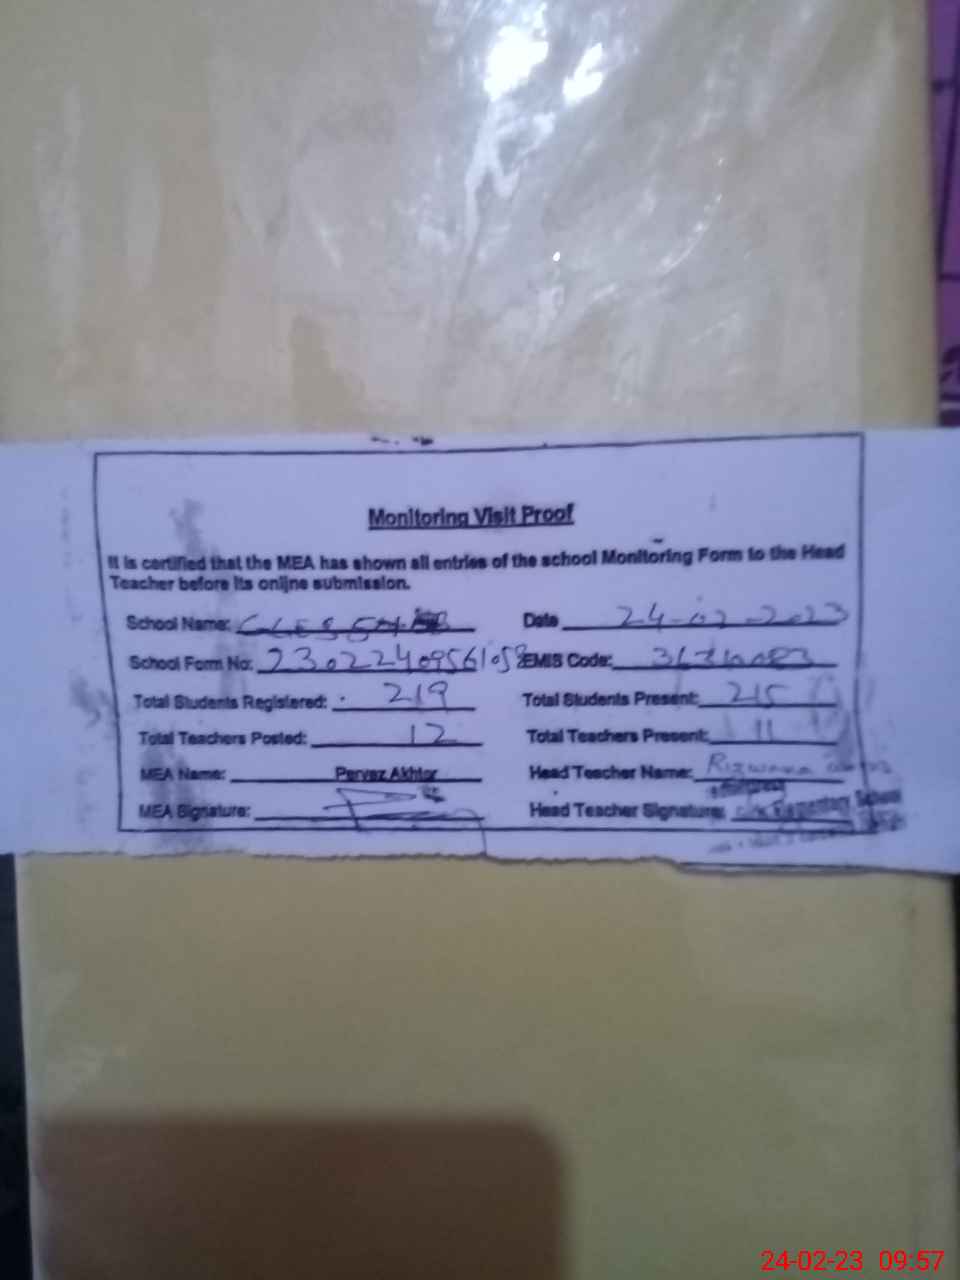 Monitoring Visit Proof
It is certified that the MEA has shown all entries of the school Monitoring Form to the Head
Teacher before its onljne submission.
School Name: Date 24-02-2023
School Form No: EMIS Code:
Total Students Registered: 219 Total Students Present: 215
Total Teachers Posted: 12 Total Teachers Present: 11
MEA Name: Pervaz Akhtar Head Teacher Name: Rizwana
MEA Signature: Head Teacher Signature:
Elementary School
24-02-23 09:57